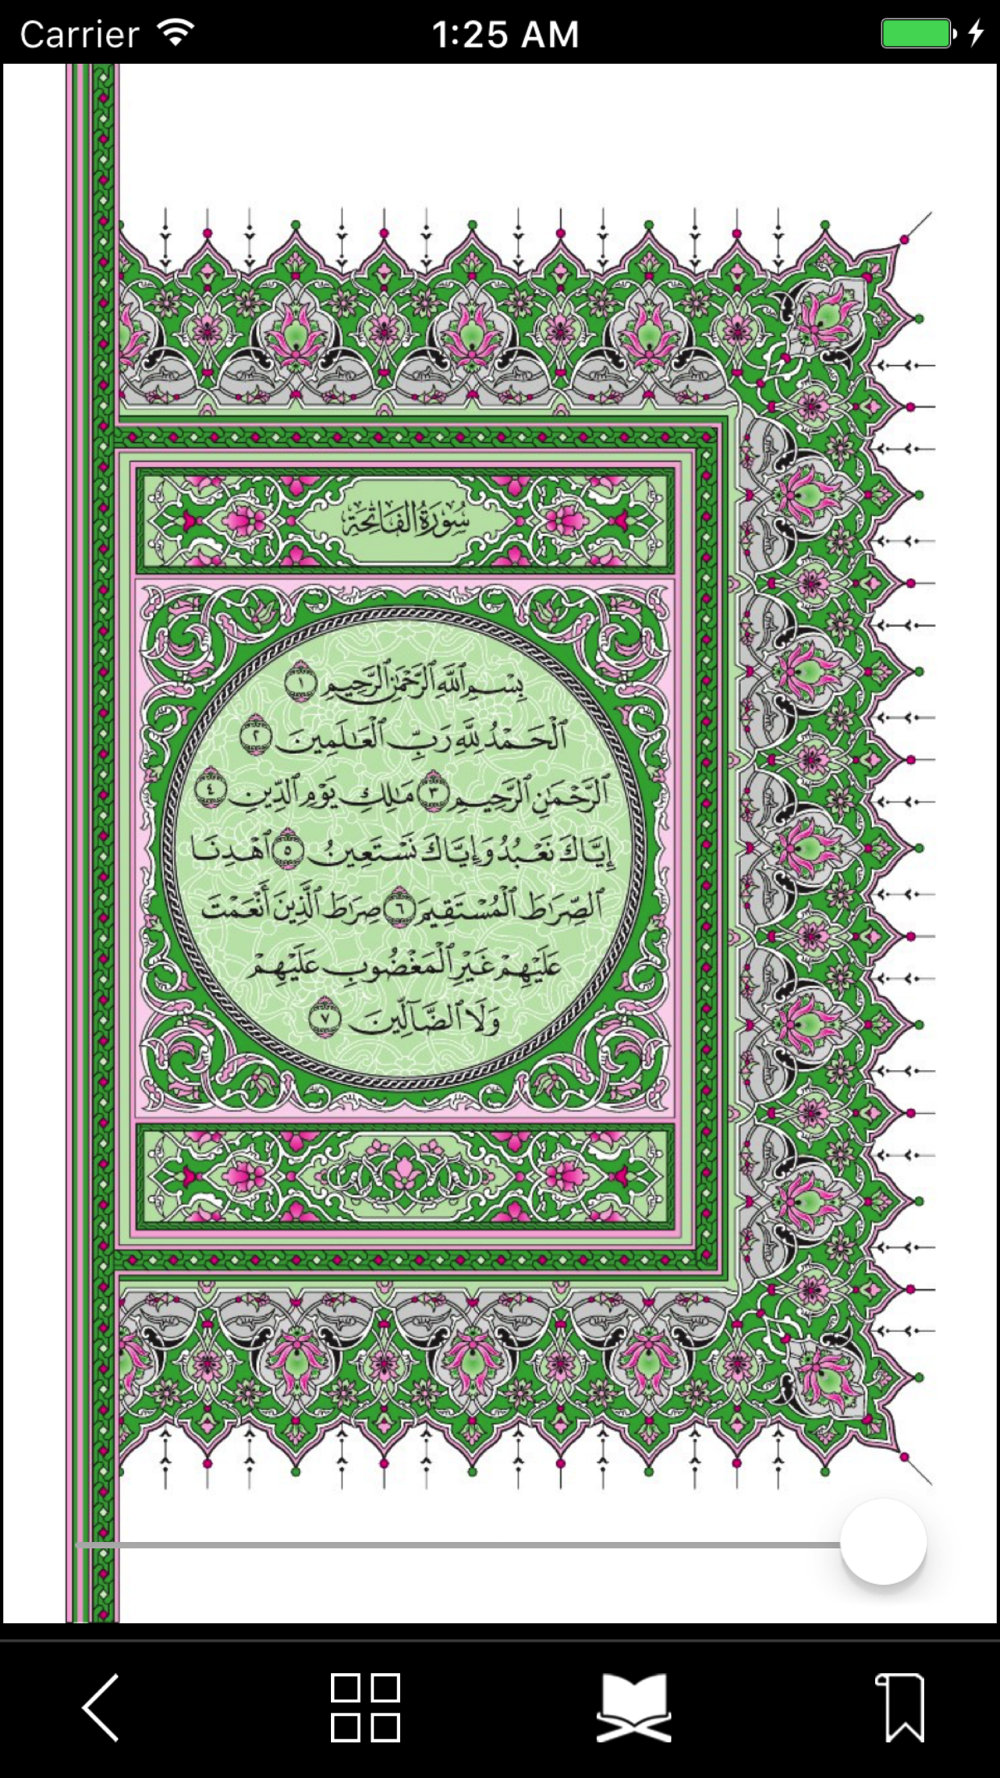 Carrier 1:25 AM
سُورَةُ الفَاتِحَةِ
بِسْمِ ٱللَّهِ ٱلرَّحْمَٰنِ ٱلرَّحِيمِ ١
ٱلْحَمْدُ لِلَّهِ رَبِّ ٱلْعَٰلَمِينَ ٢
ٱلرَّحْمَٰنِ ٱلرَّحِيمِ ٣ مَٰلِكِ يَوْمِ ٱلدِّينِ ٤
إِيَّاكَ نَعْبُدُ وَإِيَّاكَ نَسْتَعِينُ ٥ ٱهْدِنَا
ٱلصِّرَٰطَ ٱلْمُسْتَقِيمَ ٦ صِرَٰطَ ٱلَّذِينَ أَنْعَمْتَ
عَلَيْهِمْ غَيْرِ ٱلْمَغْضُوبِ عَلَيْهِمْ
وَلَا ٱلضَّآلِّينَ ٧